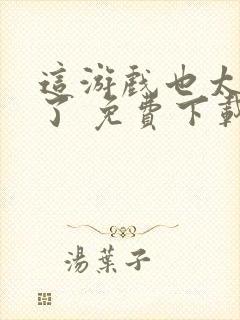 這游戲也太
了 免費下載
湯葉子